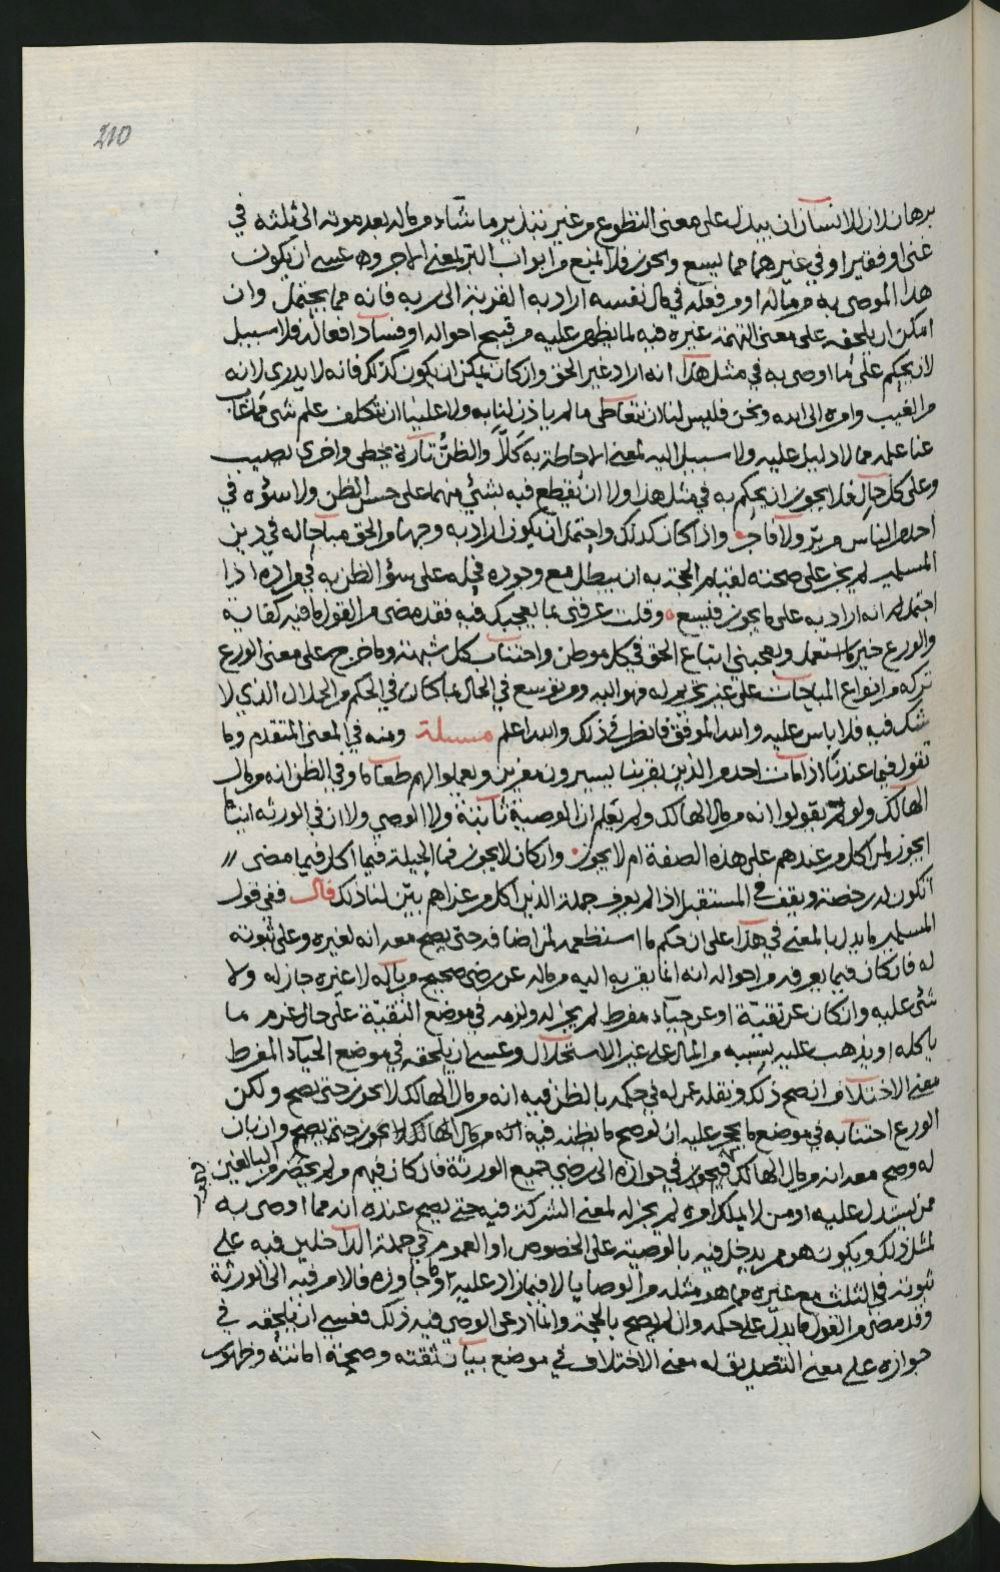 210
برهان لان للانسان ان يبذله على معنى التطوع من غير تبذير ما شاء من ماله بعد موته الى ثلثه في
غني او فقير او في غيرهما مما يسع ويجوز فلا يمنع من ابواب البر لمعنى الاجر وعسى ان يكون
هذا الموصى به من ماله او من فعله في مال نفسه اراد به القربة الى ربه فانه مما يحتمل وان
امكن ان يلحقه على معنى التهمة غيره فيه لما يظهر عليه من قبيح احواله او فساد افعاله فلا سبيل
لان يحكم على ما اوصى به في مثل هذا انه اراد غير الحق وان كان يمكن ان يكون كذلك فانه لا يدرى لانه
من الغيب وامره الى الله ونحن فليس لنا ان نتعاطى ما لم ياذن لنا به ولا علينا ان نتكلف علم شيء مما غاب
عنا علمه مما لا دليل عليه ولا سبيل اليه لمعنى الاحاطة به كلا والظن تارة يخطي واخرى يصيب
وعلى كل حال فلا يجوز ان يحكم به في مثل هذا ولا ان يقطع فيه بشيء منهما على حسن الظن ولا سوءه في
احد من الناس من بر ولا فاجر واذا كان كذلك واحتمل ان يكون اراد به وجها من الحق مباحا له في دين
المسلمين لم يجز على صحته لقيام الحجة به ان يبطل مع وجوده فحمله على سوء الظن به في مراده اذا
احتمل له انه اراد به على ما يجوز فيسع وقلت عرفني بما يعجبك فيه فقد مضى من القول ما فيه كفاية
والورع خير ما استعمل ويعجبني اتباع الحق في كل موطن واجتناب كل شبهة وما خرج على معنى الورع
تركه من انواع المباحات على غير تحريم له فهو اليه ومن توسع في الحال بما كان في الحكم من الحلال الذي لا
شك فيه فلا باس عليه والله الموفق فانظر في ذلك والله اعلم مسئلة ومنه في المعنى المتقدم وما
تقول فيما عندنا اذا مات احد من الذين بقربنا يسيرون معزين ويعملوا لهم طعاما وفي الظن انه من مال
الهالك ولو لم يقولوا انه من مال الهالك ولم يعلم ان الوصية ثابتة ولا الوصي ولا ان في الورثة ايتاما
ايجوز لمن اكل من عندهم على هذه الصفة ام لا يجوز وان كان لا يجوز فما الحيلة فيما اكل فيما مضى
اتكون له رخصة ويقف في المستقبل اذا لم يعرف جملة الذين اكل من عزاهم بين لنا ذلك قال ففي قول
المسلمين ما يدل بالمعنى في هذا على ان حكم ما استطعمه لمن اضافه حتى يصح معه انه لغيره وعلى ثبوته
له فان كان فيما يعرفه من احواله انه انما يقربه اليه من ماله عن رضى صحيح من باله لا غيره جاز له ولا
شيء عليه وان كان عن تقية او عن حياء مفرط لم يجز له ولزمه في موضع التقية على حال غرم ما
ياكله او يذهب عليه بسببه من المال على غير الاستحلال وعسى ان يلحقه في موضع الحياء المفرط
معنى الاختلاف ان صح ذلك ونقله عن له في حكمه بالظن فيه انه من مال الهالك لا يجوز حتى يصح ولكن
الورع اجتنابه في موضع ما يجر عليه ان لو صح ما يظنه فيه انه من مال الهالك لا يجوز حتى يصح وان بان
له وصح معه انه من مال الهالك فيجوز في جوازه الى رضى جميع الورثة فان كان فيهم ومن لم يحضر من البالغين
ممن يستدل عليه او من لا يملك امره لم يجز له لمعنى الشركة فيه حتى يصح عنده انه مما اوصى به
لمثل ذلك ويكون هو ممن يدخل فيه بالوصية على الخصوص او العموم في جملة الداخلين فيه على
ثبوته في الثلث مع غيره مما هو مثله من الوصايا لا فيما زاد عليه او ما جاوزه فالامر فيه الى الورثة
وقد مضى من القول ما يدل على حكمه وان لم يصح بالحجة وانما ادعى الوصي فيه ذلك فعسى ان يلحقه في
جوازه على معنى التصديق له معنى الاختلاف في موضع بيان ثقته وصحة امانته وظهور